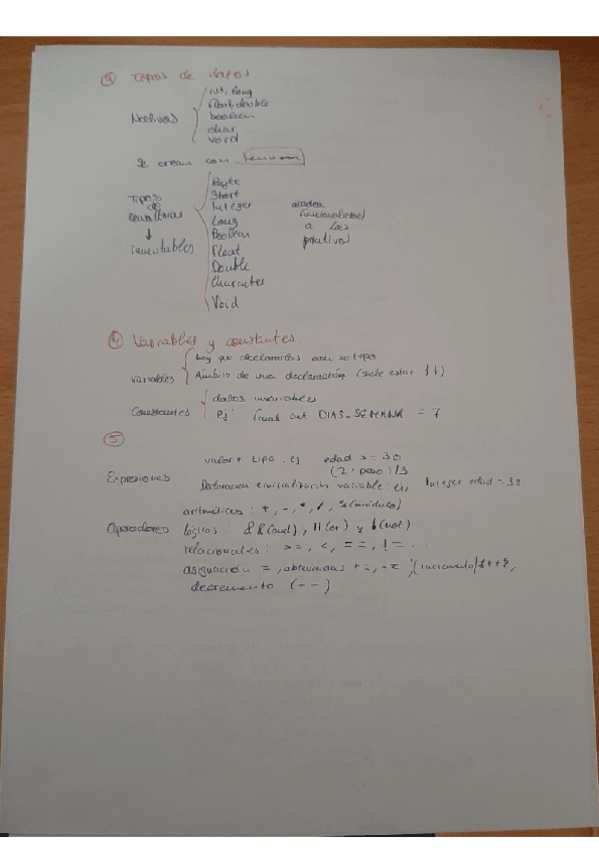 ③ Tipos de datos
Nativos
int, long
float, double
boolean
char
void
Se crean con
Tipos
de
envoltorios
↓
inmutables
Byte
Short
Integer
Long
Boolean
Float
Double
Character
Void
funcionalidad
a las
④ Variables y constantes
variables
hay que declararlas con su tipo
Ámbito de una declaración (suele estar { })
Constantes
datos invariables
Pj: final int DIAS_SEMANA = 7
⑤
Expresiones
valor + tipo. ej edad >= 30
(2 * peso)/3
Declaración e inicialización variable: ej. Integer edad = 30
Operadores
aritméticos: +, -, *, /, % (módulo)
lógicos: && (and), || (or) y ! (not)
relacionales: >=, <, ==, != ...
asignación =, abreviadas +=, -=, (incremento) {++},
decremento (--)